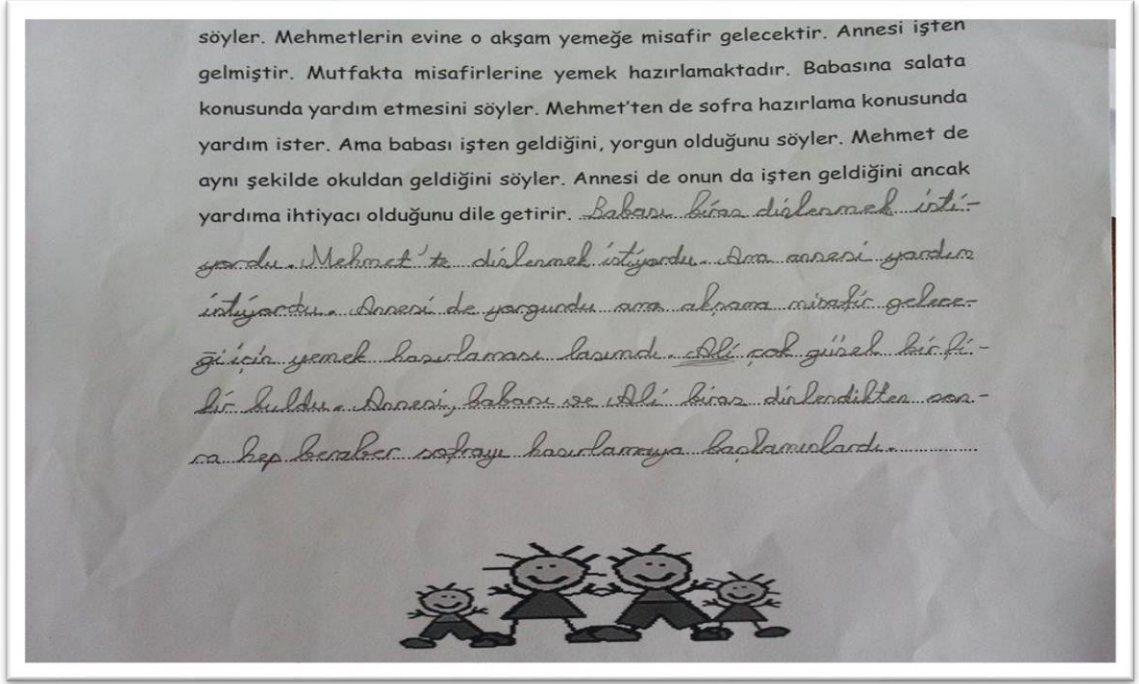 söyler. Mehmetlerin evine o akşam yemeğe misafir gelecektir. Annesi işten
gelmiştir. Mutfakta misafirlerine yemek hazırlamaktadır. Babasına salata
konusunda yardım etmesini söyler. Mehmet'ten de sofra hazırlama konusunda
yardım ister. Ama babası işten geldiğini, yorgun olduğunu söyler. Mehmet de
aynı şekilde okuldan geldiğini söyler. Annesi de onun da işten geldiğini ancak
yardıma ihtiyacı olduğunu dile getirir. Babası biraz dinlenmek isti-
yordu. Mehmet'te dinlenmek istiyordu. Ama annesi yardım
istiyordu. Annesi de yorgundu ama akşama misafir gelece-
ği için yemek hazırlaması lazımdı. Ali çok güzel bir fi-
kir buldu. Annesi, babası ve Ali biraz dinlendikten son-
ra hep beraber sofrayı hazırlamaya başlamışlardı.